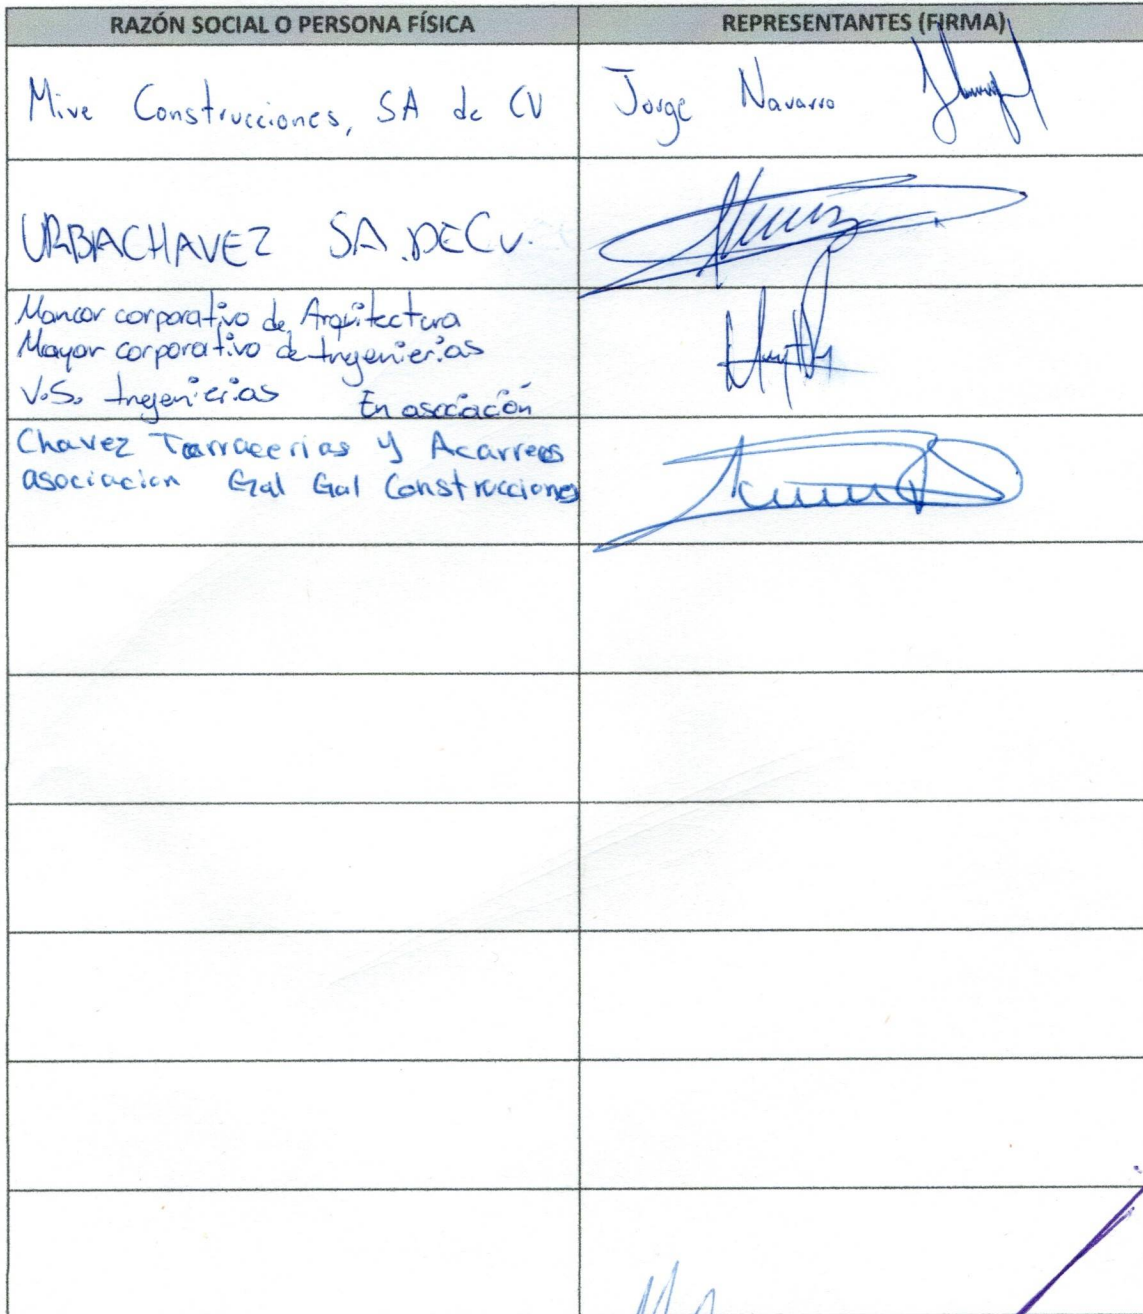 RAZÓN SOCIAL O PERSONA FÍSICA
REPRESENTANTES (FIRMA)
Mive Construcciones, SA de CV
Jorge Navarro
URBACHAVEZ SA DE CV.
Mancor corporativo de Arquitectura
Mayor corporativo de Ingenierias
V.S. Ingenierias En asociación
Chavez Terracerias y Acarreos
asociacion Gal Gal Construcciones